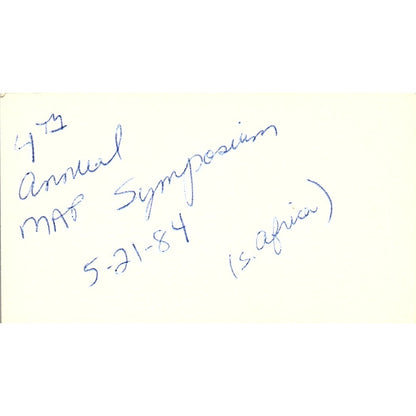 4TH
Annual
MAP Symposium
5-21-84
(S. Africa)